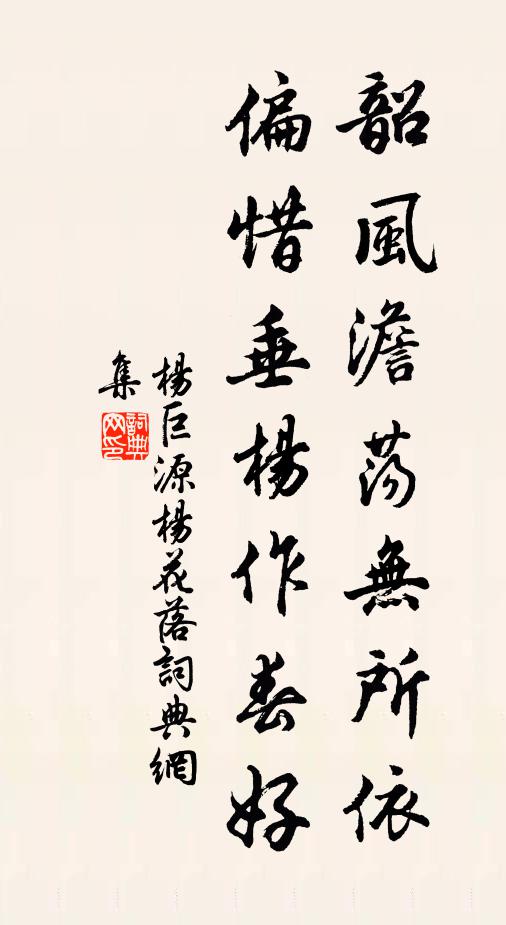 韶風澹荡無所依
偏惜垂楊作春好
楊巨源楊花落詞典網
集
詞典网印